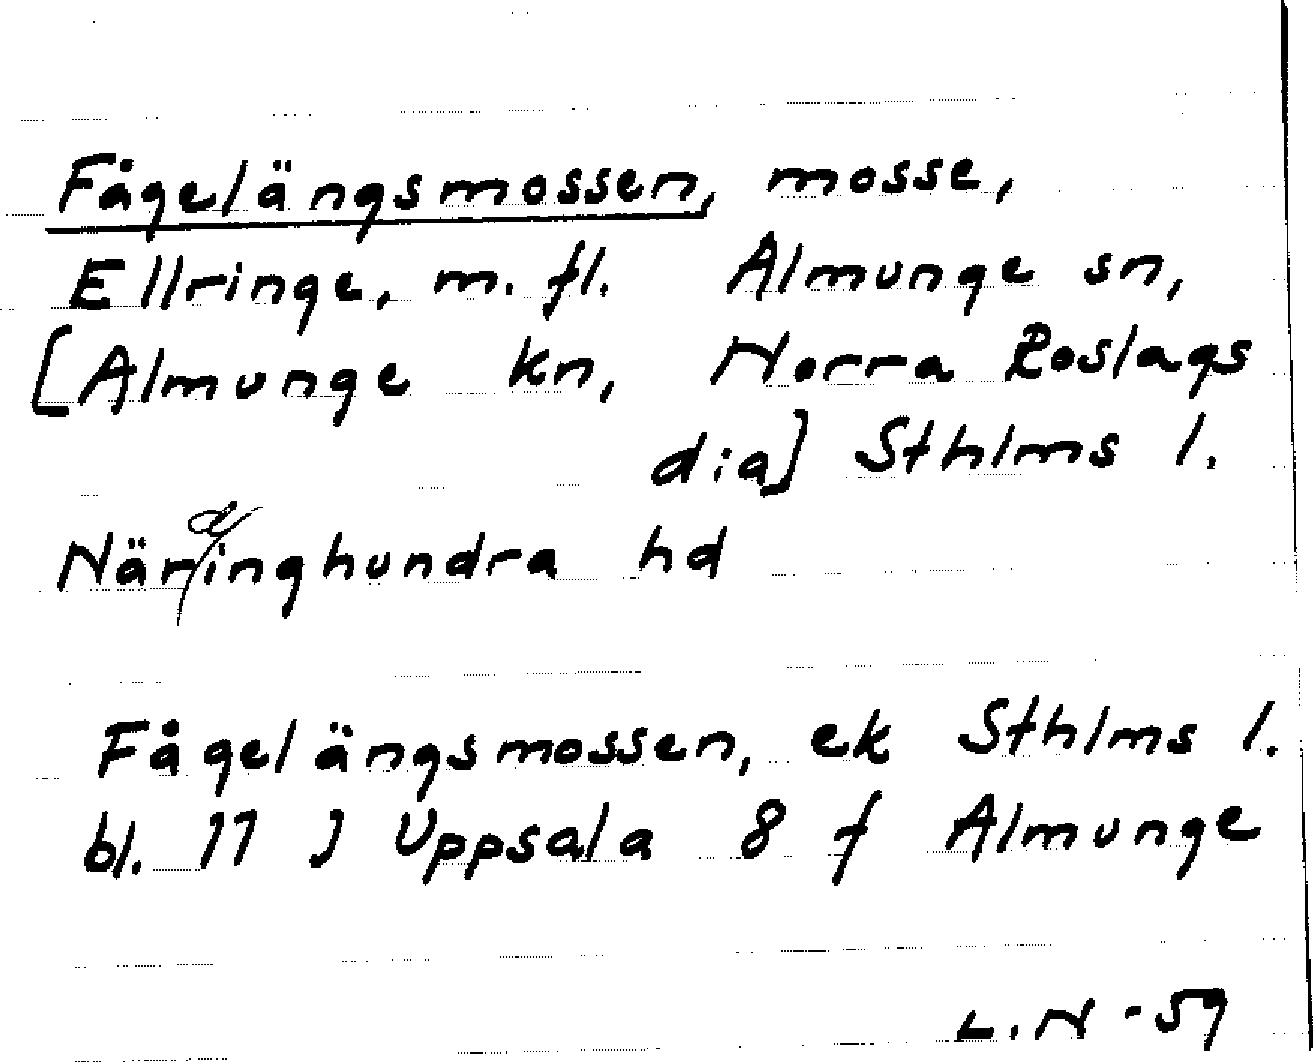 Fågelängsmossen, mosse,
Ellringe, m. fl. Almunge sn,
[Almunge kn, Norra Roslags
dia] Sthlms l.
Närdinghundra hd
Fågelängsmossen, ek Sthlms l.
bl. 11 J Uppsala 8 f Almunge
L.N -59